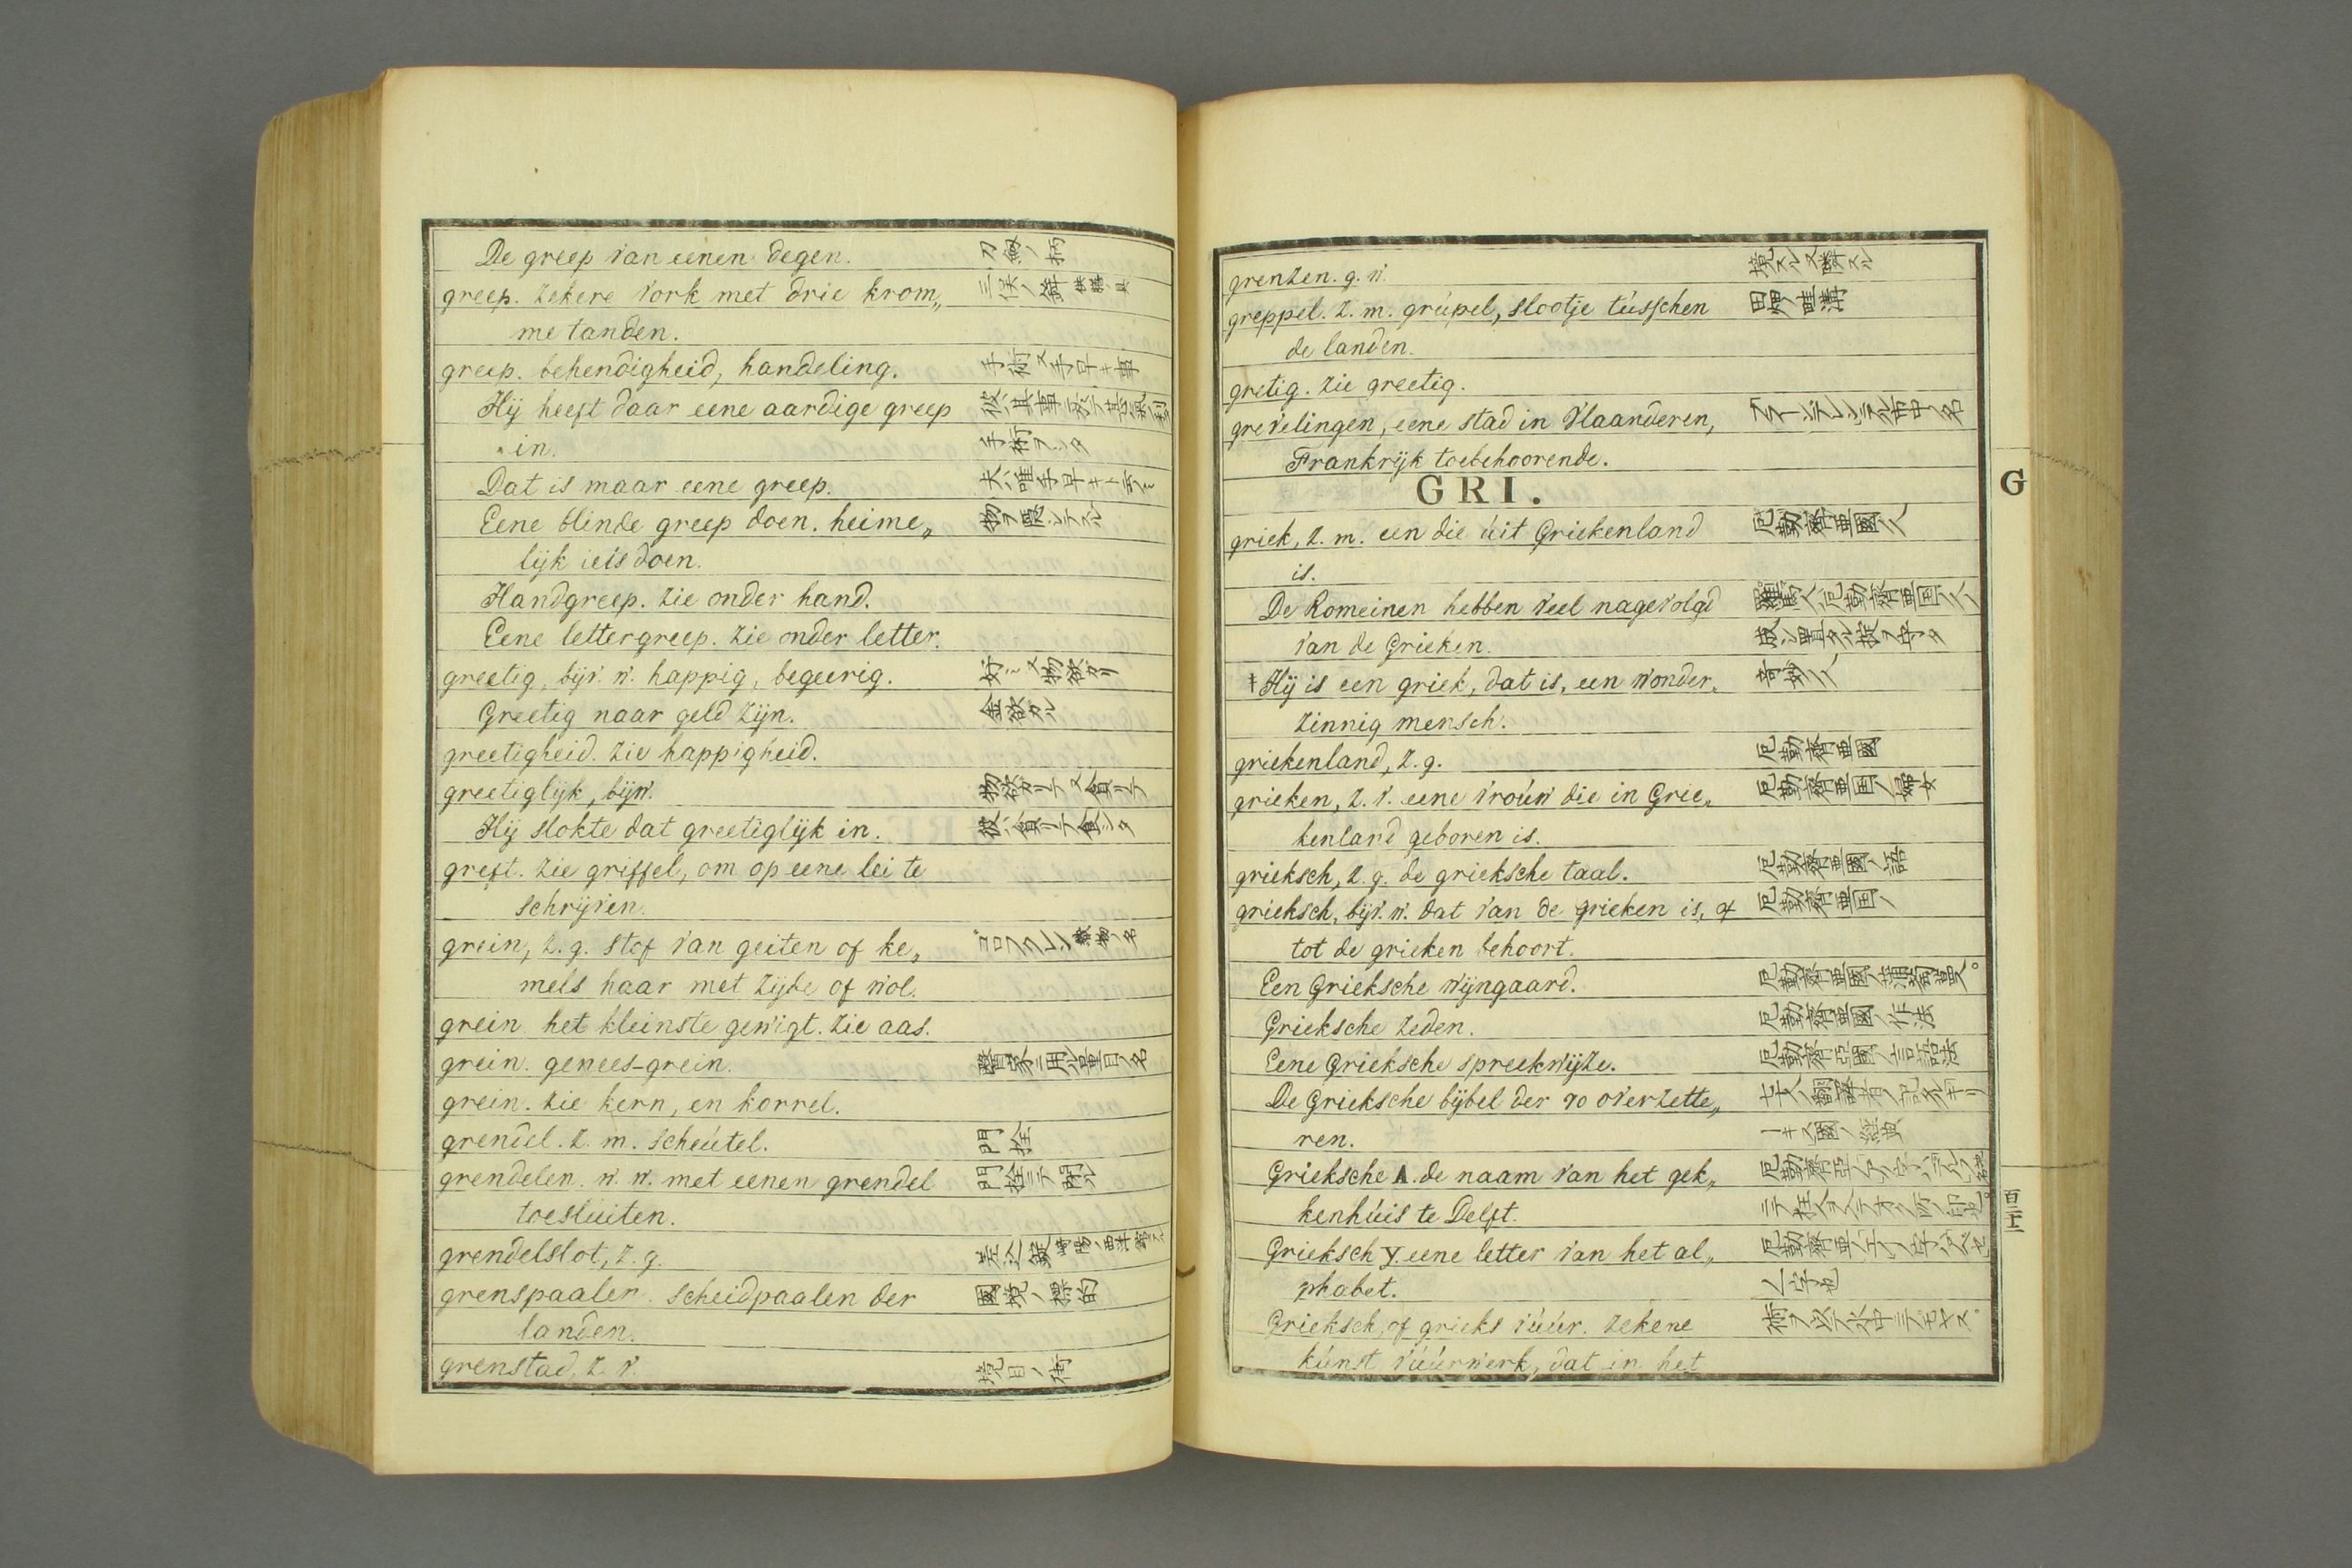 De greep van eenen degen. 刀劔ノ柄
greep. zekere vork met drie krom„
me tanden.
greep. behendigheid, handeling. 手術又手早キ事
Hij heeft daar eene aardige greep
in. 手術ヲシタ
Dat is maar eene greep.
Eene blinde greep doen. heime„ 物ヲ隠シテスル
lijk iets doen.
Handgreep. zie onder hand.
Eene lettergreep. zie onder letter.
greetig, bijv. w. happig, begeerig.
Greetig naar geld zijn. 金欲カル
greetigheid. zie happigheid.
greetiglijk, bijw.
Hij slokte dat greetiglijk in.
greft. zie griffel, om op eene lei te
schrijven.
grein, z. g. stof van geiten of ke„ ゴロフクレン
mels haar met zijde of wol.
grein het kleinste gewigt. zie aas.
grein. genees-grein. 醫家ニ用ル量目ノ名
grein. zie kern, en korrel.
grendel. z. m. scheútel. 門拴
grendelen. w. w. met eenen grendel 門拴ニテ閉ル
toesluiten.
grendelslot, z. g.
grenspaalen. scheidpaalen der 國境ノ標的
landen.
grenstad, z. v. 境目ノ街
grenzen. g. w. 境スル又隣スル
greppel. z. m. grúpel, slootje tússchen 田畑ノ畦溝
de landen.
gretig. zie greetig.
grevelingen, eene stad in Vlaanderen,
Frankrijk toebehoorende.
GRI.
G
griek, z. m. een die úit Griekenland 厄勒齊亜國ノ人
is.
De Romeinen hebben veel nagevolgd
van de Grieken.
‡ Hij is een griek, dat is, een wonder„ 奇妙ノ人
zinnig mensch.
griekenland, z. g. 厄勒齊亜國
grieken, z. v. eene vroúw die in Grie„ 厄勒齊亜国ノ婦女
kenland geboren is.
grieksch, z. g. de grieksche taal. 厄勒齊亜國ノ語
grieksch, bijv. w. dat van de grieken is, of 厄勒齊亜国ノ
tot de grieken behoort.
Een Grieksche wijngaard.
Grieksche zeden. 厄勒齊亜國ノ作法
Eene Grieksche spreekwijze. 厄勒齊亞國ノ言語法
De Grieksche bijbel der 70 overzette„
ren. ーキス國ノ經典
Grieksche A. de naam van het gek„
kenhúis te Delft.
Grieksch Y. eene letter van het al„
phabet.
Grieksch, of grieks vúúr. zekene
kúnst vúúrwerk, dat in het